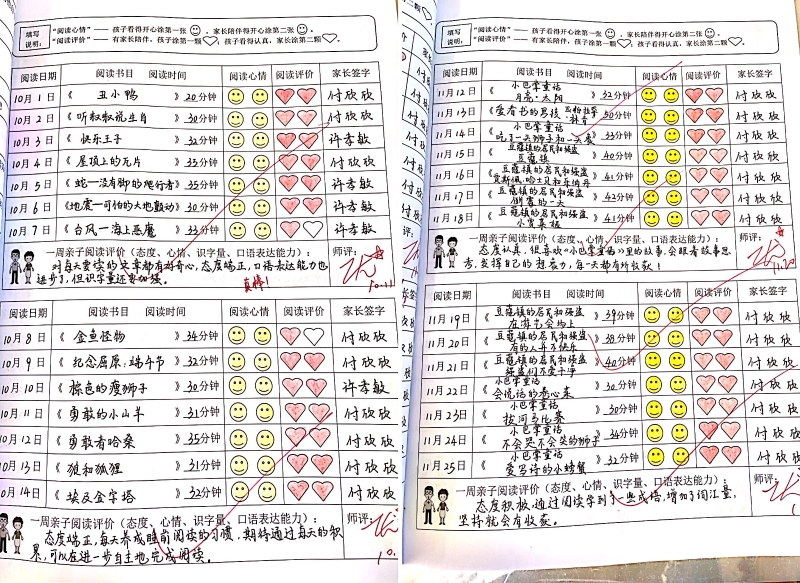 填写说明：
"阅读心情"—— 孩子看得开心涂第一张，家长陪伴得开心涂第二张。
"阅读评价"—— 有家长陪伴，孩子涂第一颗，孩子看得认真，家长涂第二颗。
阅读日期 阅读书目 阅读时间 阅读心情 阅读评价 家长签字
10月1日 《丑小鸭》20分钟 付欣欣
10月2日 《听叔叔说生肖》30分钟 付欣欣
10月3日 《快乐王子》32分钟 许孝敏
10月4日 《屋顶上的瓦片》33分钟 付欣欣
10月5日 《蛇—没有脚的爬行者》35分钟 许孝敏
10月6日 《地震—可怕的大地毂动》30分钟 许孝敏
10月7日 《台风—海上恶魔》33分钟 许孝敏
一周亲子阅读评价（态度、心情、识字量、口语表达能力）： 师评：
对每天要读的文章都有好奇心，态度端正，口语表达能力也
进步了，但识字量还要加强。
真棒！
10.11
阅读日期 阅读书目 阅读时间 阅读心情 阅读评价 家长签字
10月8日 《金鱼怪物》34分钟 付欣欣
10月9日 《纪念屈原：端午节》32分钟 付欣欣
10月10日 《棕色的瘦狮子》30分钟 许孝敏
10月11日 《勇敢的小山羊》31分钟 付欣欣
10月12日 《勇敢者哈桑》35分钟 付欣欣
10月13日 《狼和狐狸》31分钟 付欣欣
10月14日 《埃及金字塔》32分钟 付欣欣
一周亲子阅读评价（态度、心情、识字量、口语表达能力）： 师评：
态度端正，每天养成睡前阅读的习惯，期待通过每天的积
累，可以在进一步自主地完成阅读。
填写说明：
"阅读心情"—— 孩子看得开心涂第一张，家长陪伴得开心涂第二张。
"阅读评价"—— 有家长陪伴，孩子涂第一颗，孩子看得认真，家长涂第二颗。
阅读日期 阅读书目 阅读时间 阅读心情 阅读评价 家长签字
11月12日 《小巴掌童话 月亮、太阳》32分钟 付欣欣
11月13日 《爱看书的男孩》30分钟 付欣欣
11月14日 《小巴掌童话》33分钟 付欣欣
11月15日 《豆蔻镇的居民和强盗 豆蔻镇》40分钟 付欣欣
11月16日 《豆蔻镇的居民和强盗》41分钟 付欣欣
11月17日 《豆蔻镇的居民和强盗 倒霉的一天》42分钟 付欣欣
11月18日 《豆蔻镇的居民和强盗》41分钟 付欣欣
一周亲子阅读评价（态度、心情、识字量、口语表达能力）： 师评：
态度认真，很喜欢《小巴掌童话》里的故事，会跟着故事思
考，发挥自己的想象力，每一天都有所收获！
11.20
阅读日期 阅读书目 阅读时间 阅读心情 阅读评价 家长签字
11月19日 《豆蔻镇的居民和强盗 在游艺会场上》39分钟 付欣欣
11月20日 《豆蔻镇的居民和强盗 有的人并不快乐》38分钟 付欣欣
11月21日 《豆蔻镇的居民和强盗 强盗们不爱干净》40分钟 付欣欣
11月22日 《小巴掌童话 会说话的卷心菜》30分钟 付欣欣
11月23日 《小巴掌童话 拔河马比赛》30分钟 付欣欣
11月24日 《小巴掌童话 不会哭不会笑的狮子》34分钟 付欣欣
11月25日 《小巴掌童话 爱写诗的小螃蟹》32分钟 付欣欣
一周亲子阅读评价（态度、心情、识字量、口语表达能力）： 师评：
态度积极，通过阅读学到了一些成语，增加了词汇量，
坚持就会有收获。